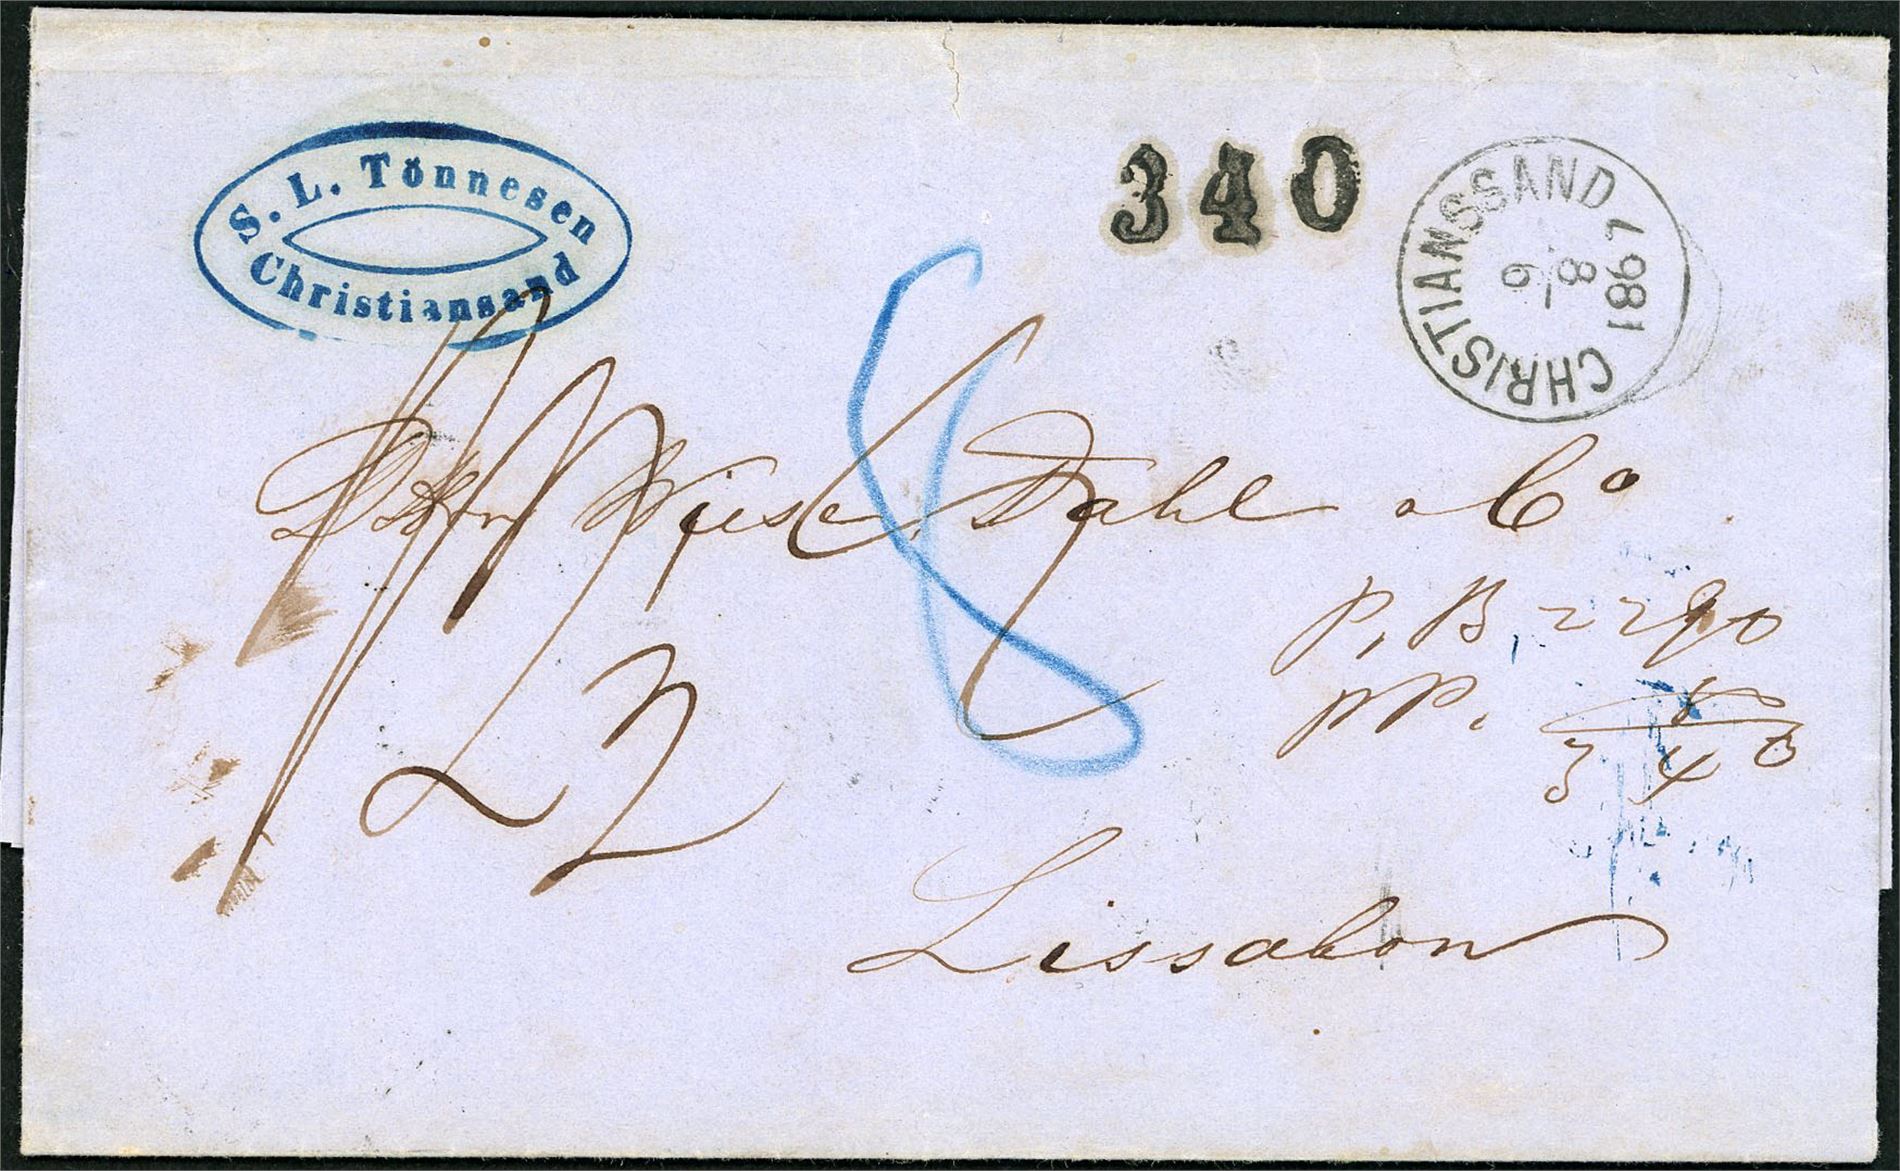 S. L. Tönnesen
Christiansand
340
CHRISTIANSSAND
8
6
1867
8
Wiese, Dahl & Co
P. B. 2290
pp.
3 40
Lissabon